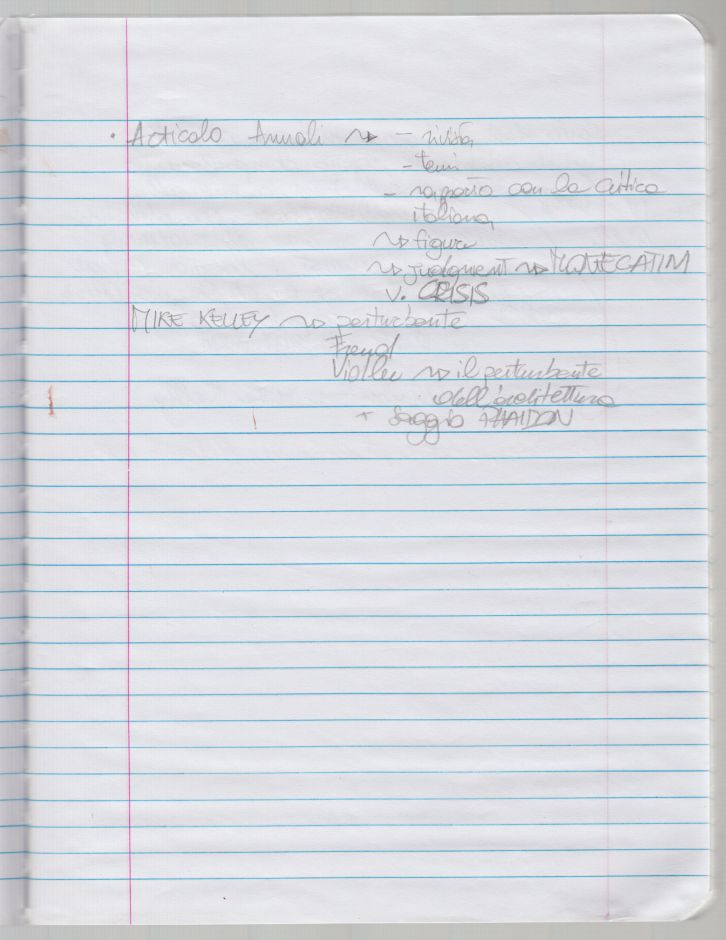 • Articolo Annali ⤳ - rivista
- temi
- rapporto con la critica
italiana
⤳ figure
⤳ judgment ⤳
v. CRISIS
MIKE KELLEY ⤳ perturbante
Freud
⤳ il perturbante
dell'architettura
+ Saggio PHAIDON